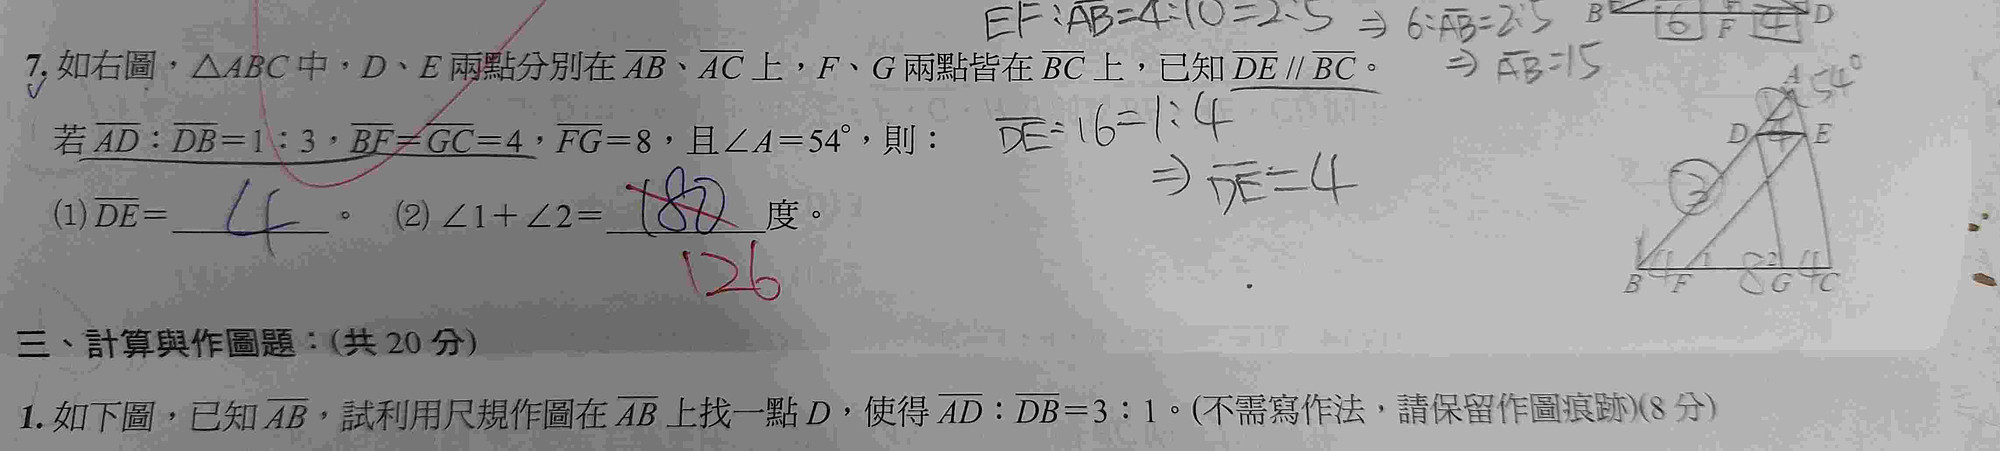 EF:AB=4:10=2:5 ⇒ 6:AB=2:5
⇒ AB=15
B 6 F 4 D
7. 如右圖，△ABC 中，D、E 兩點分別在 AB、AC 上，F、G 兩點皆在 BC 上，已知 DE // BC。
若 AD：DB＝1：3，BF＝GC＝4，FG＝8，且∠A＝54°，則：
DE:16=1:4
⇒ DE=4
(1) DE＝ 4 。 (2) ∠1＋∠2＝ 180 度。
126
A 54°
D 4 E
3
B 4 F 1 8 2 G 4 C
三、計算與作圖題：(共 20 分)
1. 如下圖，已知 AB，試利用尺規作圖在 AB 上找一點 D，使得 AD：DB＝3：1。(不需寫作法，請保留作圖痕跡)(8 分)